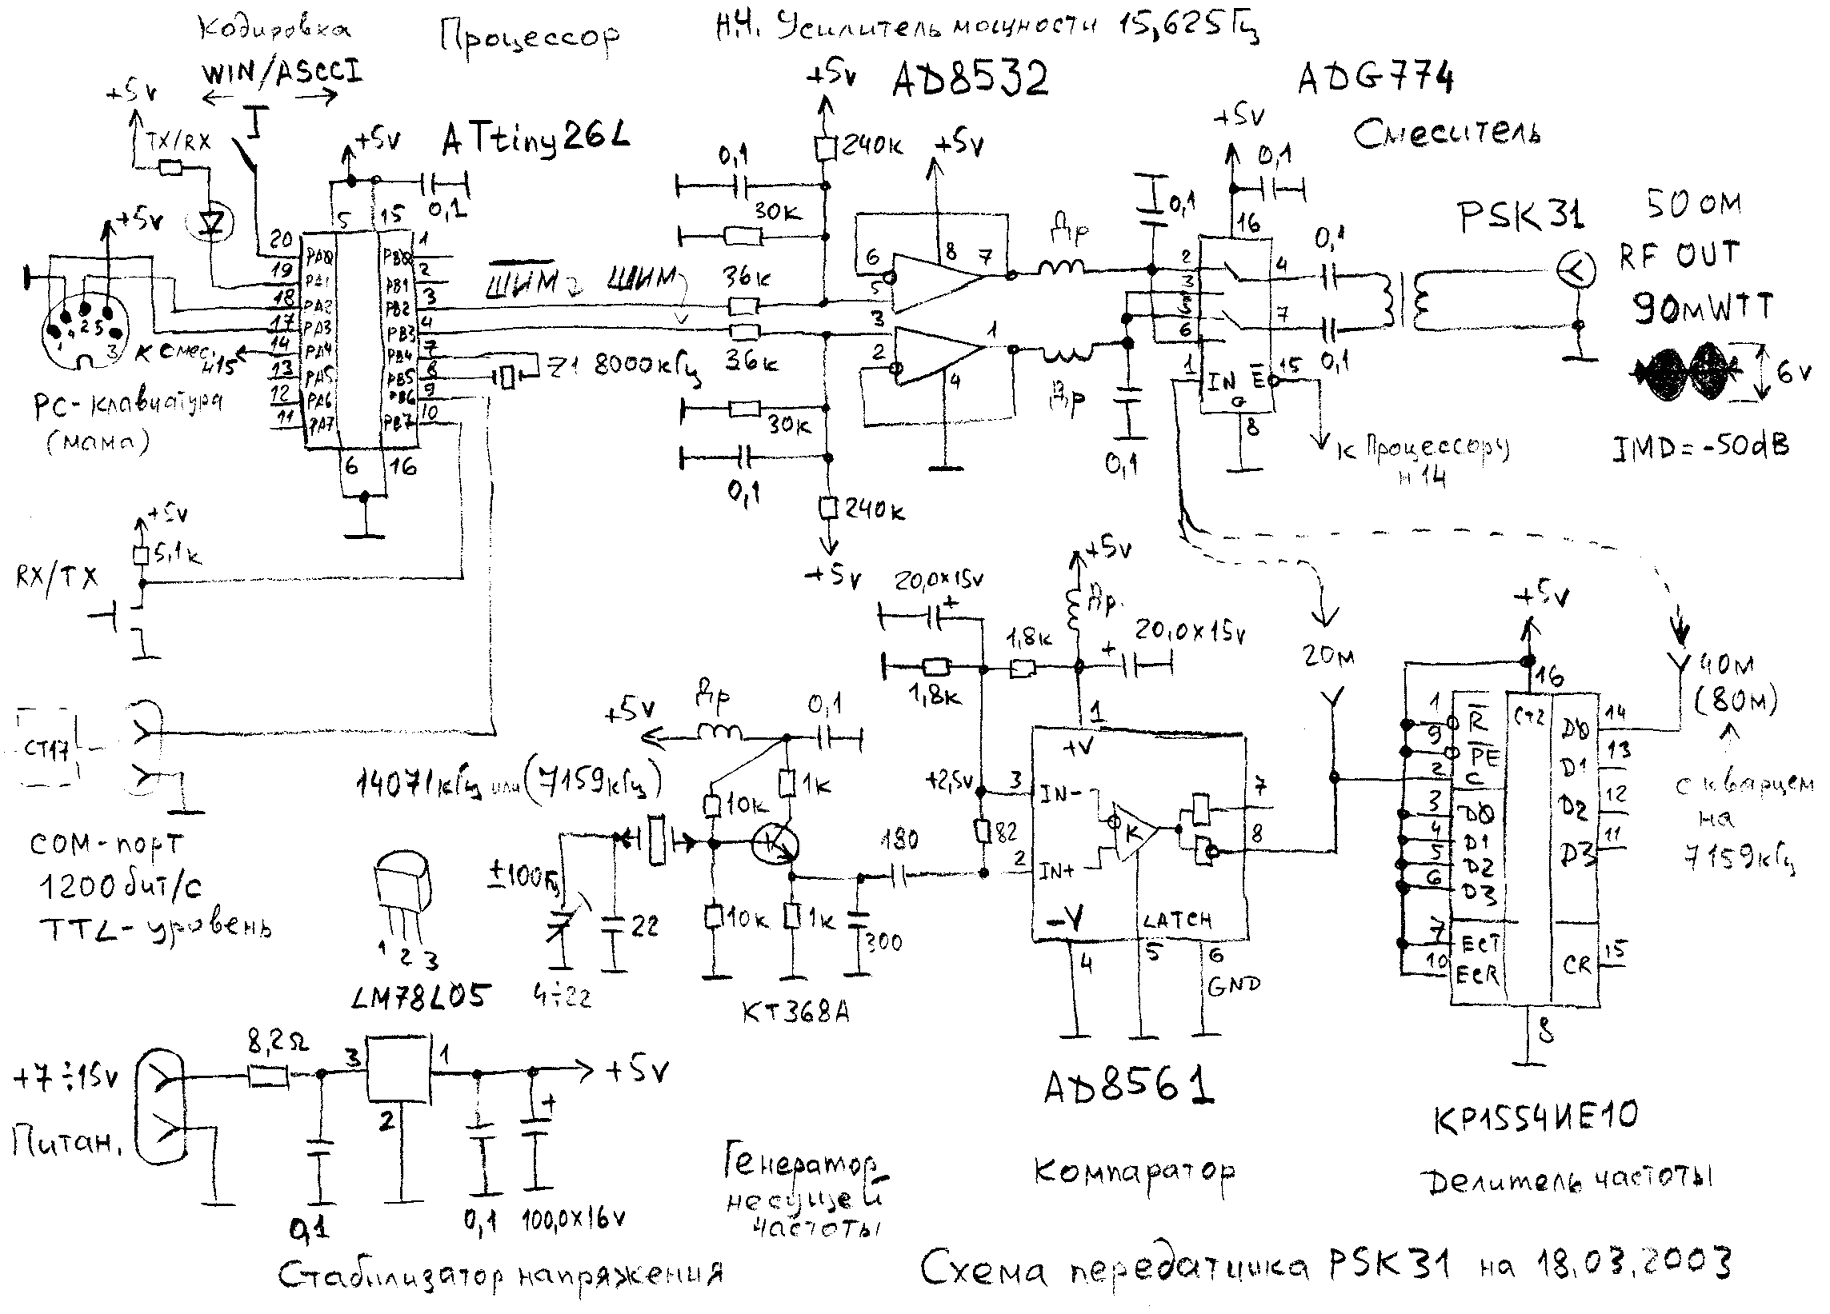 Кодировка
WIN/ASCCI
Процессор
Н.Ч. Усилитель мощности 15,625Гц
AD8532
ADG774
Смеситель
ATtiny26L
+5v
TX/RX
+5v
0,1
+5v
5
15
20
19
18
17
14
13
12
11
PA0
PA1
PA2
PA3
PA4
PA5
PA6
PA7
PB0
PB1
PB2
PB3
PB4
PB5
PB6
PB7
1
2
3
4
7
8
9
10
6
16
1
4
2
5
3
к смес.
н15
PC-клавиатура
(мама)
ШИМ
ШИМ
Z1 8000кГц
+5v
240к
0,1
30к
36к
36к
30к
0,1
240к
+5v
+5v
6
5
8
7
3
2
1
4
Др
Др
0,1
0,1
+5v
0,1
16
2
3
5
6
1
IN
E
G
4
7
15
8
0,1
0,1
к Процессору
н14
PSK31
50 ОМ
RF OUT
90мWTT
6v
IMD=-50dB
+5v
5,1к
RX/TX
СТ17
COM-порт
1200бит/с
TTL-уровень
1
2
3
LM78L05
+5v
Др
0,1
14071кГц или (7159кГц)
10к
1к
±100Гц
4÷22
22
10к
1к
300
180
КТ368А
20,0x15v
+
1,8к
1,8к
+5v
Др.
+
20,0x15v
+2,5v
82
1
+V
3
IN-
2
IN+
K
7
8
-V
LATCH
4
5
6
GND
AD8561
20м
40м
(80м)
с кварцем
на
7159кГц
+5v
16
1
R
9
PE
2
C
3
D0
4
D1
5
D2
6
D3
7
ECT
10
ECR
CT2
D0
14
D1
13
D2
12
D3
11
CR
15
8
КР1554ИЕ10
Делитель частоты
+7÷15v
Питан.
8,2Ω
3
1
2
+5v
+
0,1
0,1
100,0x16v
Стабилизатор напряжения
Генератор
несущей
частоты
Компаратор
Схема передатчика PSK31 на 18.03.2003